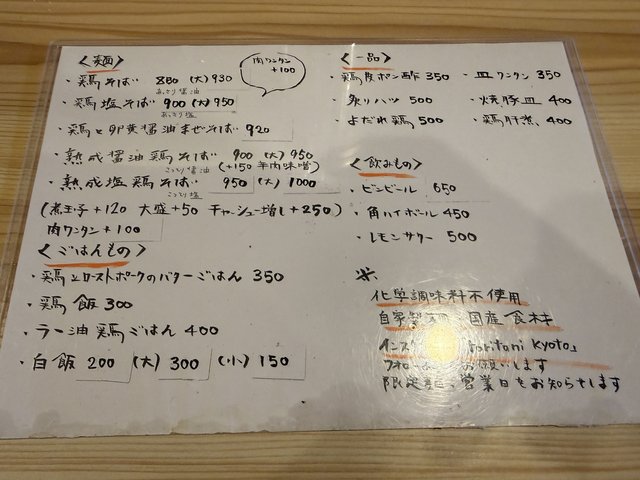 〈麺〉
・鶏そば 880 (大)930
あっさり醤油
肉ワンタン
+100
・鶏塩そば 900 (大)950
あっさり塩
・鶏と卵黄醤油まぜそば 920
・熟成醤油鶏そば 900 (大)950
こってり醤油 (+150 牛肉味噌)
・熟成塩鶏そば 950 (大)1000
こってり塩
(煮玉子+120 大盛+50 チャーシュー増し+250)
肉ワンタン+100
〈ごはんもの〉
・鶏とローストポークのバターごはん 350
・鶏飯 300
・ラー油鶏ごはん 400
・白飯 200 (大) 300 (小) 150
〈一品〉
・鶏皮ポン酢 350 ・皿ワンタン 350
・炙りハツ 500 ・焼豚皿 400
・よだれ鶏 500 ・鶏肝煮 400
〈飲みもの〉
・ビンビール 650
・角ハイボール 450
・レモンサワー 500
※
化学調味料不使用
自家製 国産食材
インスタ oritani kyoto」
フォロー お願いします
限定 営業日をお知らせします